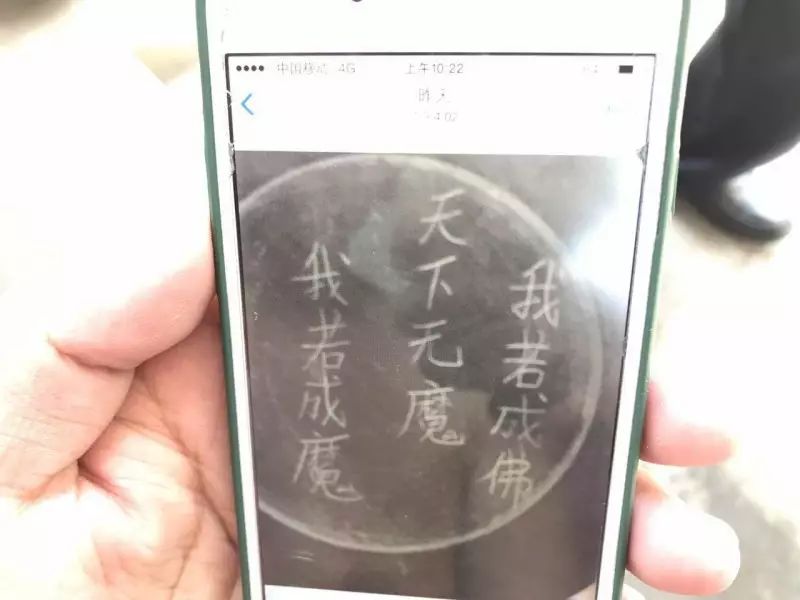 中国移动 4G
上午10:22
昨天
我若成佛
天下无魔
我若成魔